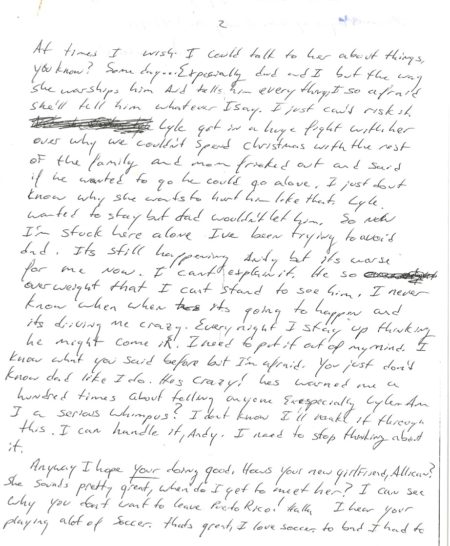 2
At times I wish I could talk to her about things,
you know? Some day... Expesially dad and I but the way
she worships him and tells him everything, I so afraid
she'll tell him whatever I say. I just can't risk it.
Lyle got in a huge fight with her
over why we couldn't spend Christmas with the rest
of the family and mom friaked out and said
if he wanted to go he could go alone. I just don't
know why she wants to hurt him like that. Lyle
wanted to stay but dad wouldn't let him. So now
I'm stuck here alone I've been trying to avoid
dad. Its still happening Andy but its worse
for me now. I can't explain it. He so
overweight that I can't stand to see him. I never
know when when its going to happen and
its driving me crazy. Every night I stay up thinking
he might come in. I need to put it out of my mind. I
know what you said before but I'm afraid. You just don't
know dad like I do. Hes crazy! hes warned me a
hundred times about telling anyone Exespecially Lyle. Am
I a serious whimpus? I don't know I'll make it through
this. I can handle it, Andy. I need to stop thinking about
it.
Anyway I hope your doing good. Hows your new girlfriend, Allison?
She sounds pretty great, when do I get to meet her? I can see
why you don't want to leave Puerto Rico! Haha I hear your
playing alot of Soccer. thats great, I love soccer. to bad I had to